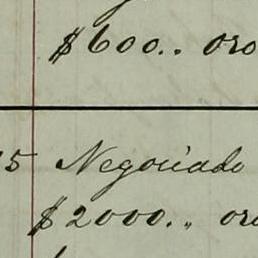 $600.. oro
15 Negociado
$2000.. oro